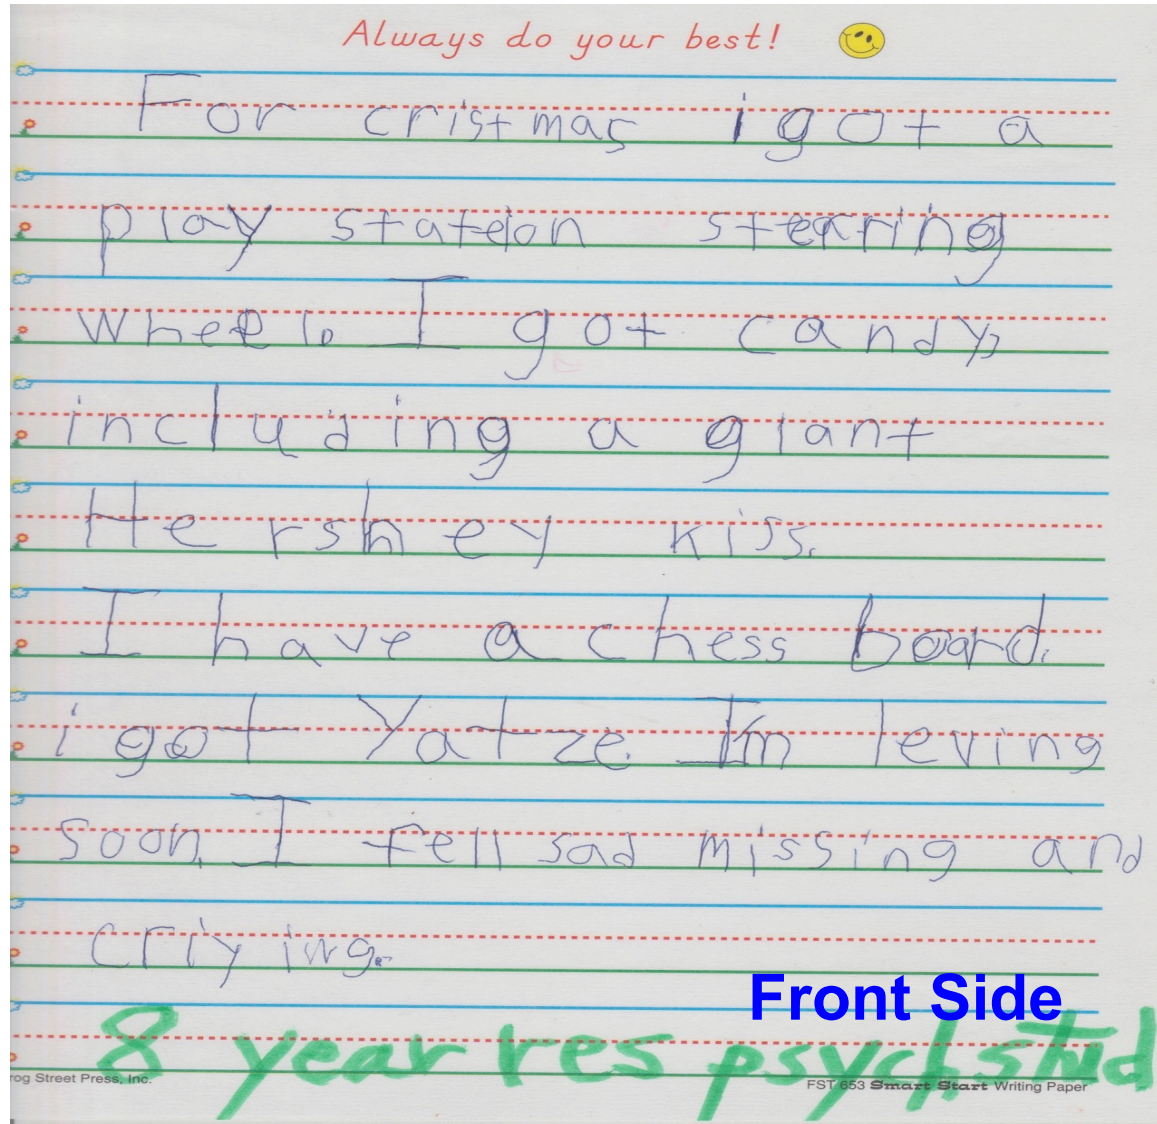 Always do your best!
For cristmas i got a
play station stearing
wheel. I got candy,
including a giant
Hershey kiss.
I have a chess board.
i got Yatze. Im leving
soon. I fell sad missing and
criy ing.
Front Side
8 year res psych. stud
rog Street Press, Inc.
FST 653 Smart Start Writing Paper